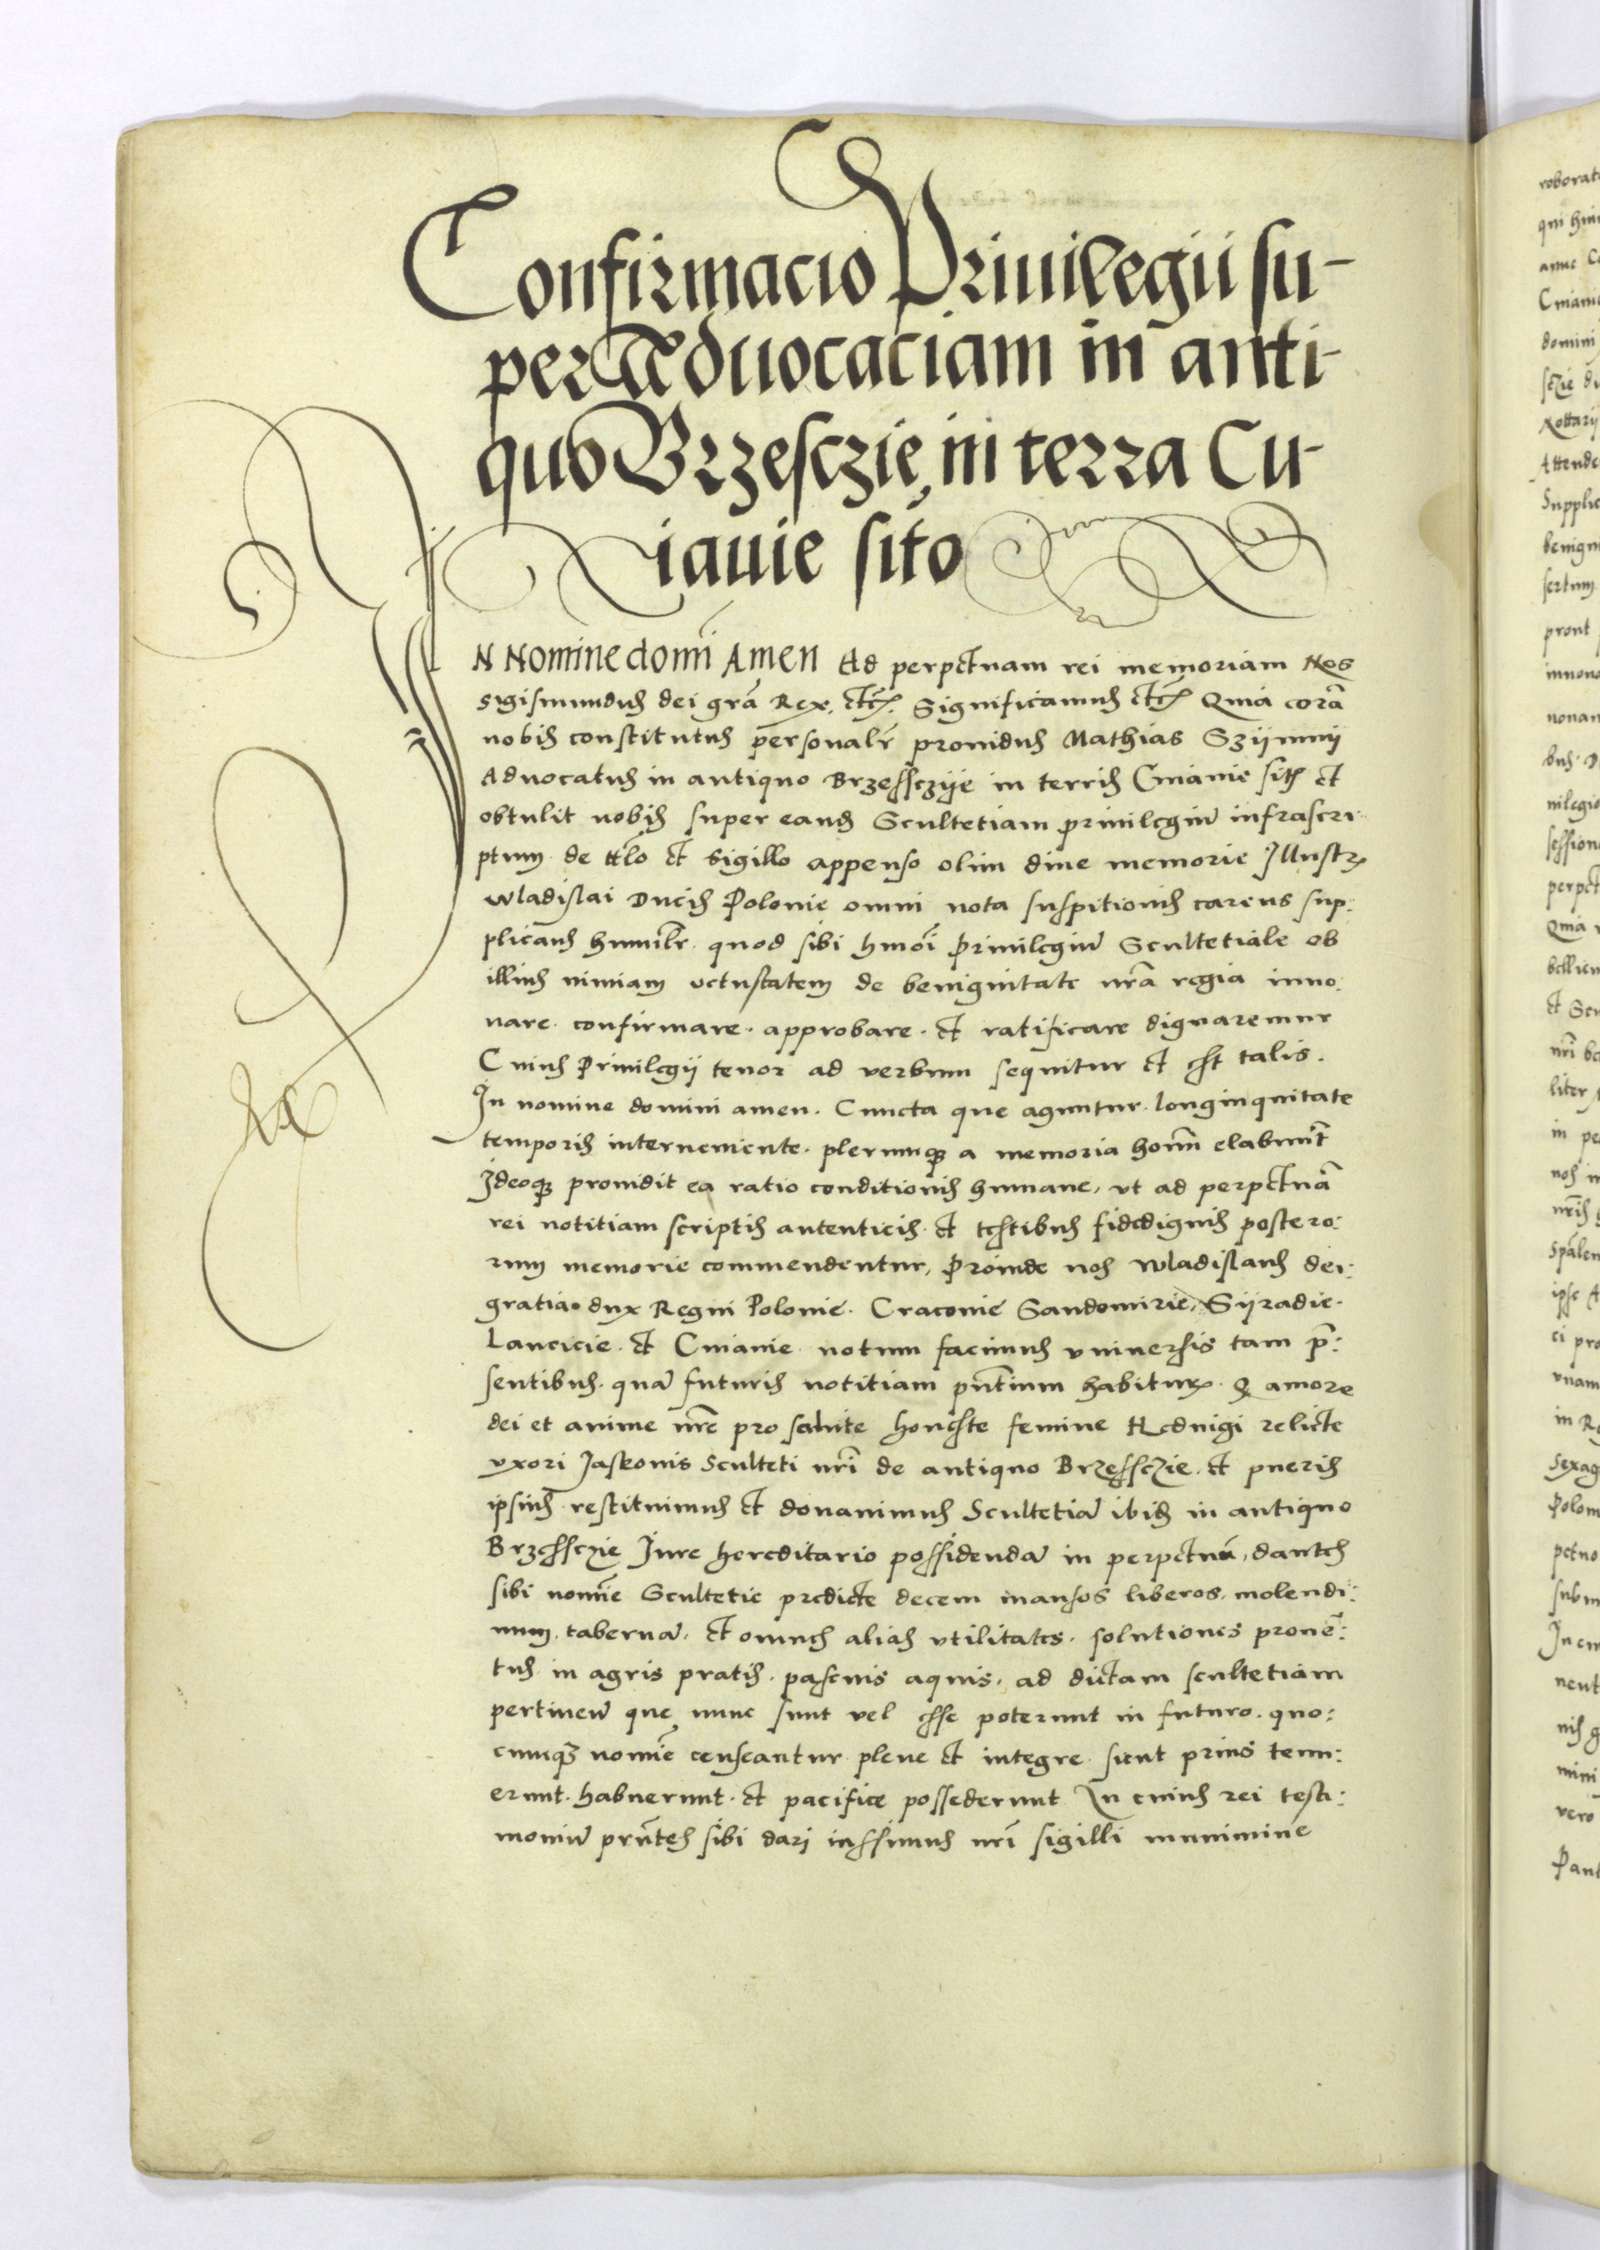 Confirmacio Priuilegii su-
per Aduocaciam in anti-
quo Brzesczie, in terra Cu-
iauie sito
IN Nomine domĩ Amen Ad perpetuam rei memoriam Nos
Sigismundus dei grã Rex. etc. Significamus etc Quia corã
nobis constitutus personalr̃ prouidus Mathias Szÿmmÿ
Aduocatus in antiquo Brzessczÿe in terris Cuiauie sit et
obtulit nobis super eand Scultetiam priuilegiũ infrascri-
ptum de ttlo et sigillo appenso olim diue memorie Illustr
Wladislai Ducis Polonie omni nota suspitionis carens sup:
plicans humilr̃. quod sibi hmõi priuilegiũ Scultetiale ob
illius nimiam vetustatem de benignitate nrã regia inno:
uare. confirmare. approbare. et ratificare dignaremur
Cuius Priuilegii tenor ad verbum sequitur et est talis.
In nomine domini amen. Cuncta que aguntur longinquitate
temporis interueniente. plerumq a memoria homĩ elabunt
Ideoq prouidit ea ratio conditionis humane, vt ad perpetuã
rei notitiam scriptis autenticis. et testibus fidedignis postero:
rum memorie commendentur, Proinde nos Wladislaus dei:
gratia. dux Regni Polonie. Cracouie Sandomirie, Sÿradie.
Lancicie. et Cuiauie. notum facimus vniuersis tam p̃:
sentibus. quã futuris notitiam pñtium habitur. Q amore
dei et anime nrẽ pro salute honeste femine Hedwigi relicte
vxori Jaskonis Sculteti nrĩ de antiquo Brzessczie. et pueris
ipsius restituimus et donauimus Scultetiã ibid in antiquo
Brzessczie Jure hereditario possidendã in perpetuũ, dantes
sibi nomĩe Scultetie predicte decem mansos liberos. molendi:
num. tabernã. et omnes alias vtilitates. solutiones prouẽ:
tus in agris pratis. pascuis aquis. ad dictam scultetiam
pertineñ que nunc sunt vel esse poterunt in futuro. quo:
cunq nomĩe censeantur plene et integre sicut prius tenu:
erunt. habuerunt. et pacifice possederunt In cuius rei testi:
moniũ prñtes sibi dari iussimus nrĩ sigilli munimine